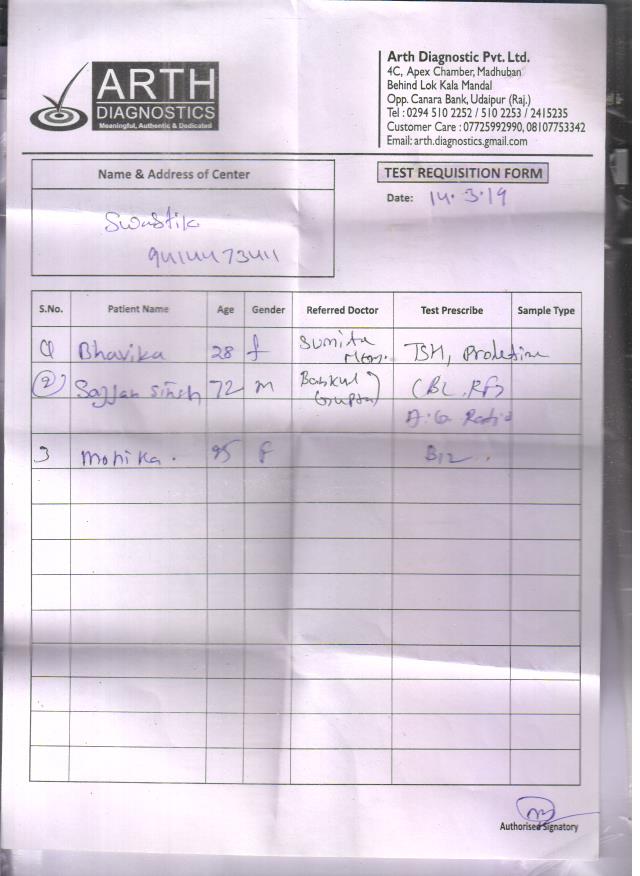 ARTH
DIAGNOSTICS
Meaningful, Authentic & Dedicated
Arth Diagnostic Pvt. Ltd.
4C, Apex Chamber, Madhuban
Behind Lok Kala Mandal
Opp. Canara Bank, Udaipur (Raj.)
Tel : 0294 510 2252 / 510 2253 / 2415235
Customer Care : 07725992990, 08107753342
Email: arth.diagnostics.gmail.com
Name & Address of Center
TEST REQUISITION FORM
Date: 14.3.19
Swastik
S.No. Patient Name Age Gender Referred Doctor Test Prescribe Sample Type
Bhavika 28 f Sunita TSH,
2 Sajjan Singh 72 m Gupta
A:G Ratio
3 Monika. f B12
Authorised Signatory